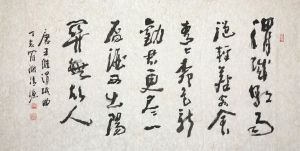 渭城朝雨
浥輕塵客舍
青青柳色新
勸君更盡一
杯酒西出陽
關無故人
唐王維渭城曲
丁亥